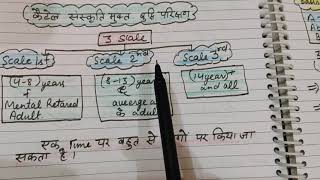 कैटल संस्कृति मुक्त बुद्धि परिक्षण
3 Scale
Scale 1st
Scale 2nd
Scale 3rd
(4-8) years
+
Mental Retared
Adult
(8-13) years
average
के adult
(14 years)+
and all
एक Time पर बहुत से पर किया जा
सकता है।